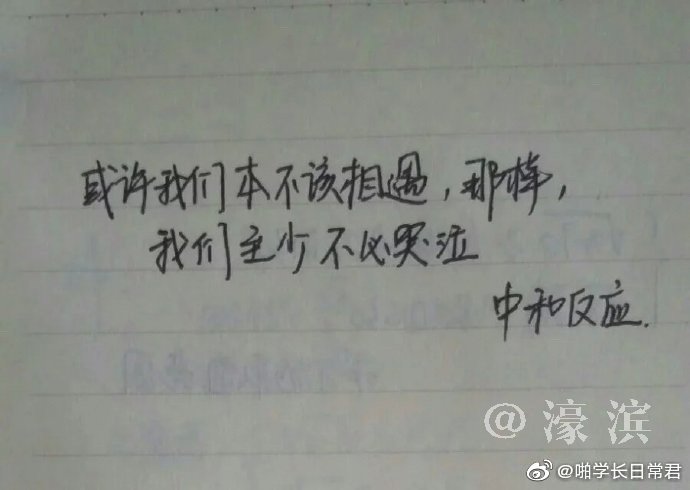 或许我们本不该相遇，那样，
我们至少不必哭泣
中和反应.
@濠滨
@啪学长日常君